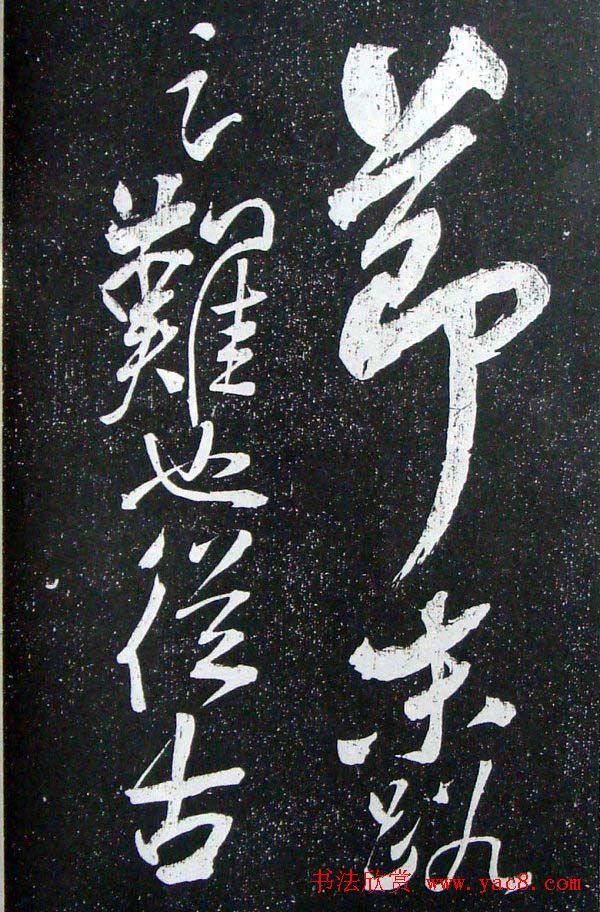 節末路
之難也從古
书法欣赏 www.yac8.com